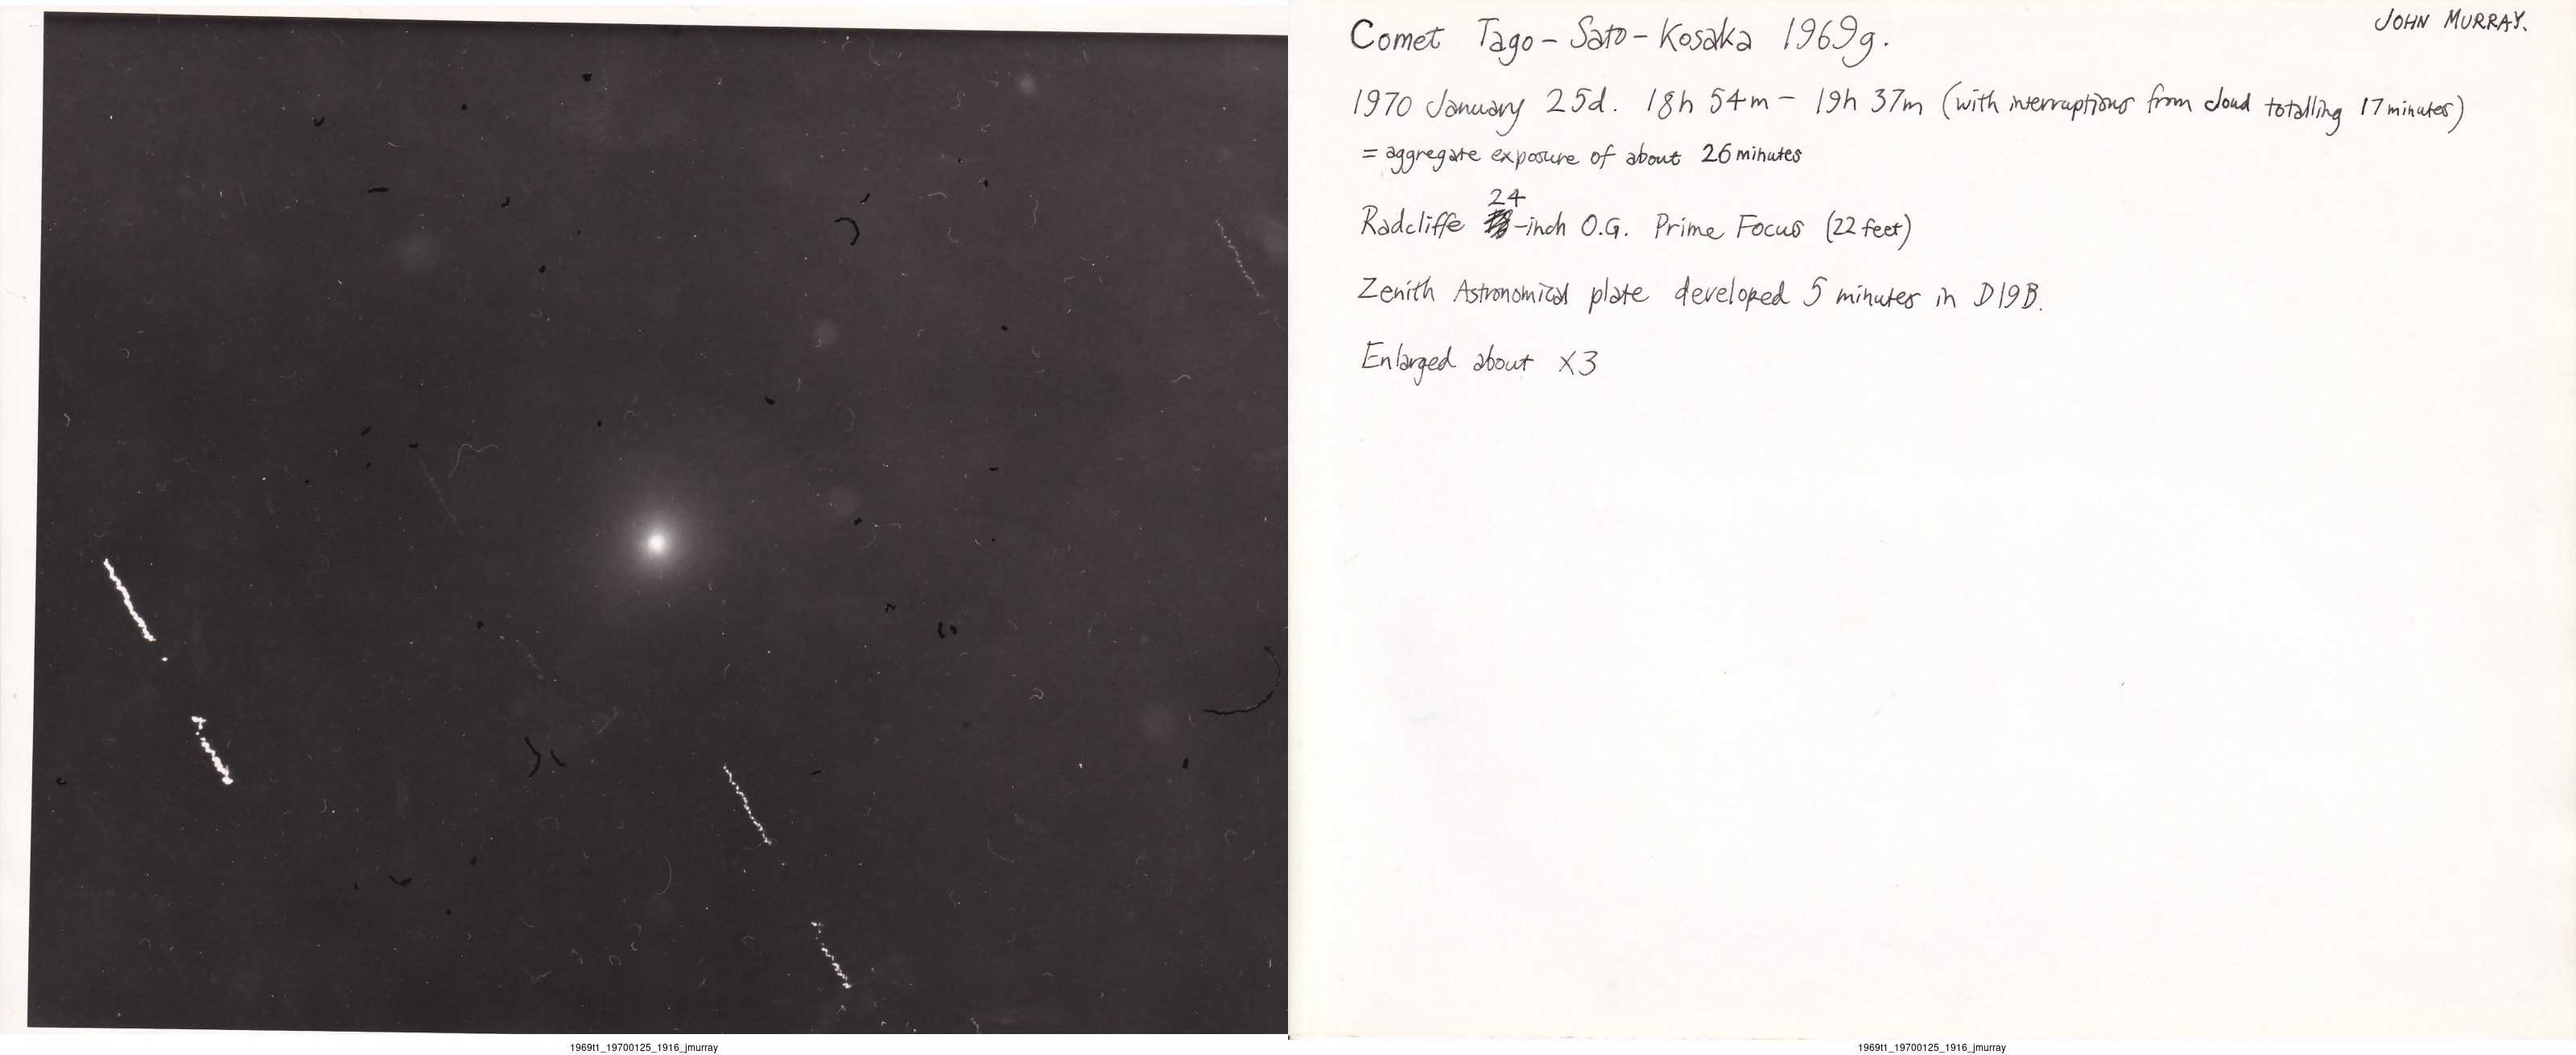 JOHN MURRAY.
Comet Tago-Sato-Kosaka 1969g.
1970 January 25d. 18h 54m - 19h 37m (with interruptions from cloud totalling 17 minutes)
= aggregate exposure of about 26 minutes
24
Radcliffe -inch O.G. Prime Focus (22 feet)
Zenith Astronomical plate developed 5 minutes in D19B.
Enlarged about X3
1969t1_19700125_1916_jmurray
1969t1_19700125_1916_jmurray